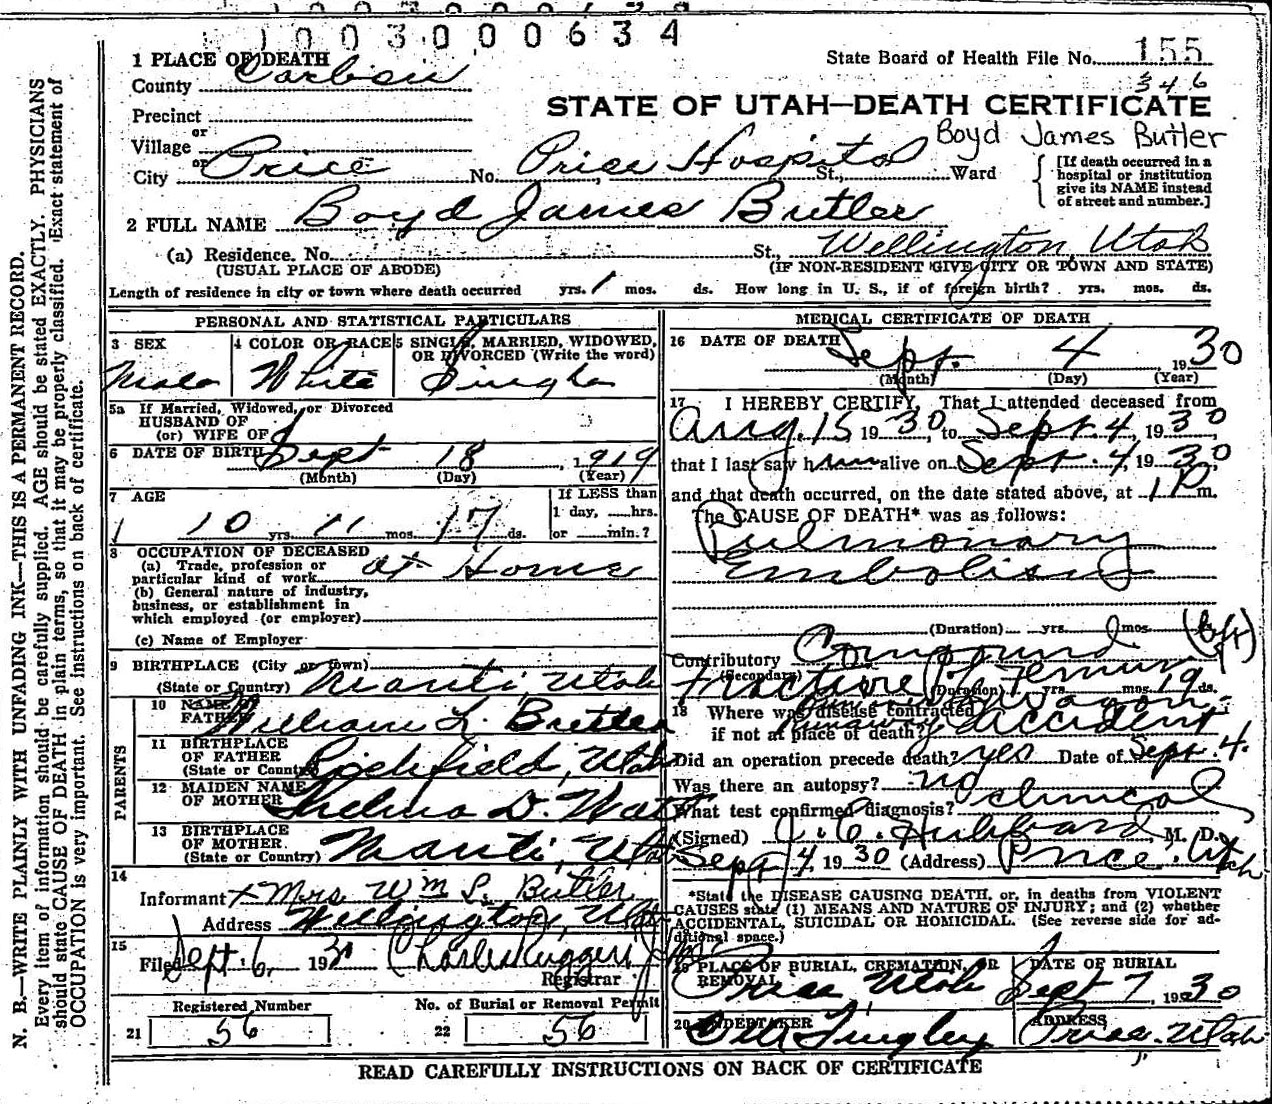 1003000634
1 PLACE OF DEATH
State Board of Health File No. 155
County Carbon
346
STATE OF UTAH—DEATH CERTIFICATE
Precinct
or
Village
Boyd James Butler
or
City Price No. Price Hospital St., Ward
[If death occurred in a hospital or institution give its NAME instead of street and number.]
2 FULL NAME Boyd James Butler
(a) Residence. No. St., Wellington, Utah
(USUAL PLACE OF ABODE) (IF NON-RESIDENT GIVE CITY OR TOWN AND STATE)
Length of residence in city or town where death occurred yrs. 1 mos. ds. How long in U. S., if of foreign birth? yrs. mos. ds.
PERSONAL AND STATISTICAL PARTICULARS
3 SEX 4 COLOR OR RACE 5 SINGLE, MARRIED, WIDOWED, OR DIVORCED (Write the word)
Male White Single
5a If Married, Widowed, or Divorced
HUSBAND OF
(or) WIFE OF
6 DATE OF BIRTH Sept 18, 1919
(Month) (Day) (Year)
7 AGE
10 yrs. 11 mos. 17 ds.
If LESS than
1 day, ......hrs.
or ......min.?
8 OCCUPATION OF DECEASED
(a) Trade, profession or
particular kind of work at Home
(b) General nature of industry,
business, or establishment in
which employed (or employer)
(c) Name of Employer
9 BIRTHPLACE (City or town)
(State or Country) Manti, Utah
PARENTS
10 NAME OF FATHER William L. Butler
11 BIRTHPLACE
OF FATHER
(State or Country) Richfield, Utah
12 MAIDEN NAME
OF MOTHER Thelma D. Watt
13 BIRTHPLACE
OF MOTHER.
(State or Country) Manti, Utah
14
Informant x Mrs Wm L. Butler
Address Wellington, Utah
15
Filed Sept 6, 1930 Charles Ruggeri
Registrar
Registered Number No. of Burial or Removal Permit
21 56 22 56
MEDICAL CERTIFICATE OF DEATH
16 DATE OF DEATH Sept. 4 1930
(Month) (Day) (Year)
17 I HEREBY CERTIFY, That I attended deceased from
Aug. 15, 1930, to Sept. 4, 1930,
that I last saw him alive on Sept. 4, 1930,
and that death occurred, on the date stated above, at 1 P m.
The CAUSE OF DEATH* was as follows:
Pulmonary
Embolism
(Duration) yrs. mos. ds.
Contributory Compound
(Secondary) Fracture of Femur
(Duration) yrs. mos. 19 ds.
18 Where was disease contracted
if not at place of death? runaway wagon accident
Did an operation precede death? yes Date of Sept. 4.
Was there an autopsy? no
What test confirmed diagnosis? clinical
(Signed) J. C. Hubbard, M. D.
Sept 4, 1930 (Address) Price, Utah
*State the DISEASE CAUSING DEATH, or, in deaths from VIOLENT
CAUSES state (1) MEANS AND NATURE OF INJURY; and (2) whether
ACCIDENTAL, SUICIDAL OR HOMICIDAL. (See reverse side for ad-
ditional space.)
19 PLACE OF BURIAL, CREMATION, OR REMOVAL DATE OF BURIAL
Price Utah Sept 7, 1930
20 UNDERTAKER ADDRESS
Price, Utah
READ CAREFULLY INSTRUCTIONS ON BACK OF CERTIFICATE
N. B.—WRITE PLAINLY WITH UNFADING INK—THIS IS A PERMANENT RECORD.
Every item of information should be carefully supplied. AGE should be stated EXACTLY. PHYSICIANS
should state CAUSE OF DEATH in plain terms, so that it may be properly classified. Exact statement of
OCCUPATION is very important. See instructions on back of certificate.